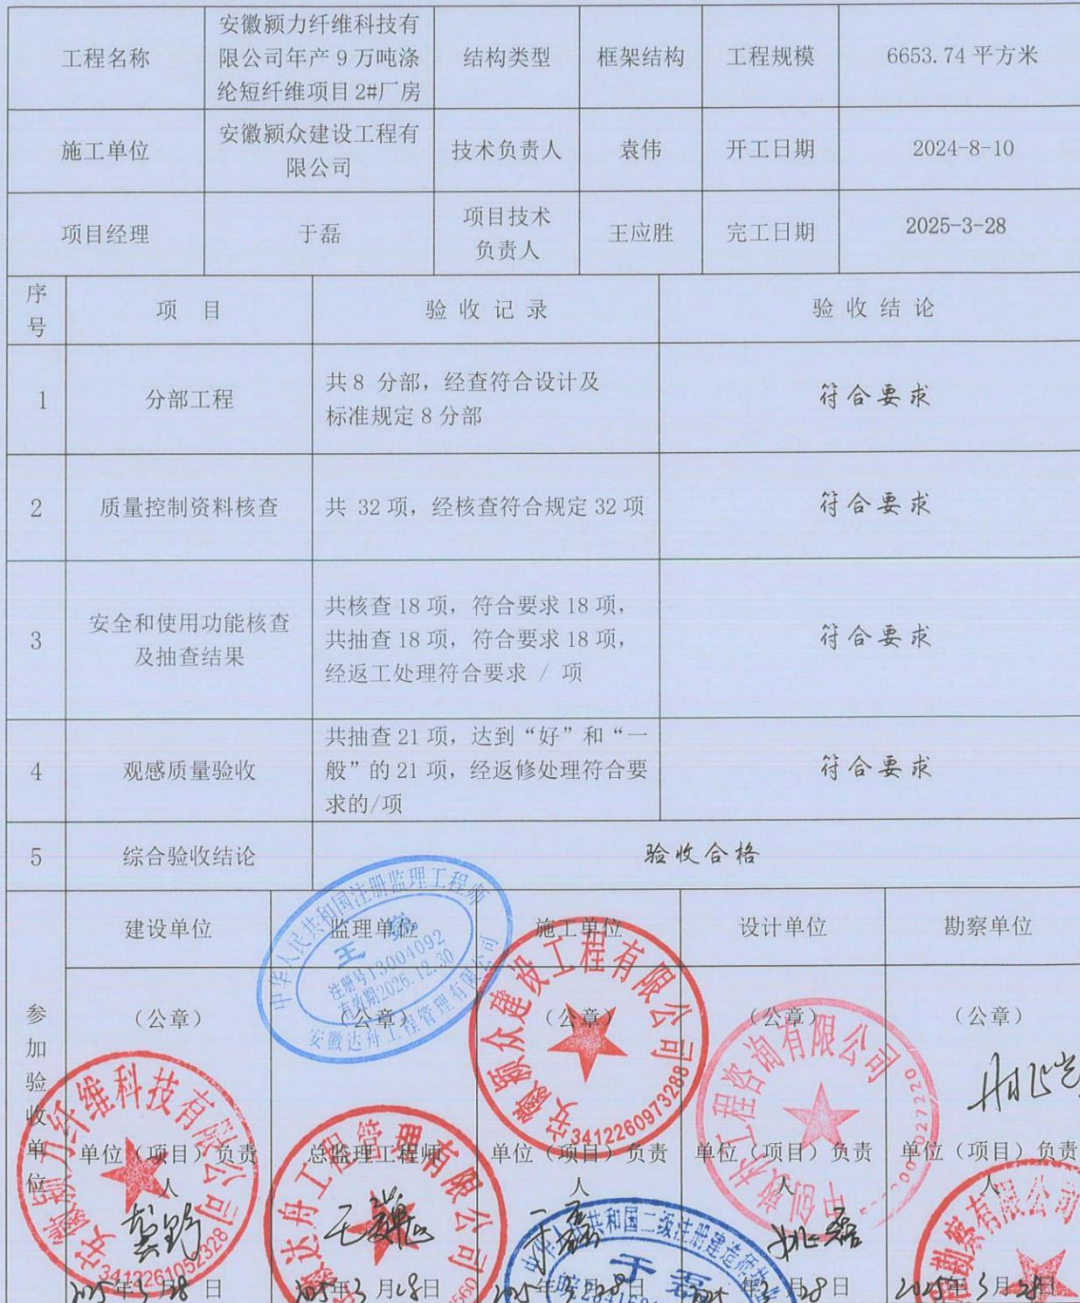 工程名称
安徽颍力纤维科技有
限公司年产 9 万吨涤
纶短纤维项目 2#厂房
结构类型
框架结构
工程规模
6653.74 平方米
施工单位
安徽颍众建设工程有
限公司
技术负责人
袁伟
开工日期
2024-8-10
项目经理
于磊
项目技术
负责人
王应胜
完工日期
2025-3-28
序
号
项 目
验 收 记 录
验 收 结 论
1
分部工程
共 8 分部，经查符合设计及
标准规定 8 分部
符合要求
2
质量控制资料核查
共 32 项，经核查符合规定 32 项
符合要求
3
安全和使用功能核查
及抽查结果
共核查 18 项，符合要求 18 项，
共抽查 18 项，符合要求 18 项，
经返工处理符合要求 / 项
符合要求
4
观感质量验收
共抽查 21 项，达到“好”和“一
般”的 21 项，经返修处理符合要
求的/项
符合要求
5
综合验收结论
验收合格
参
加
验
收
单
位
建设单位
监理单位
施工单位
设计单位
勘察单位
（公章）
（公章）
（公章）
（公章）
（公章）
单位（项目）负责
人
总监理工程师
单位（项目）负责
人
单位（项目）负责
人
单位（项目）负责
人
2025年3月28日
2025年3月28日
年3月28日
年3月28日
2025年3月28日
中华人民共和国注册监理工程师
王
注册号13004092
有效期2026.12.30
安徽达舟工程管理有限公司
安徽颍力纤维科技有限公司
3412261052328
达舟工程管理有限公司
安徽颍众建设工程有限公司
3412260973288
工程咨询有限公司
共和国二级注册建造师
于磊
勘察有限公司